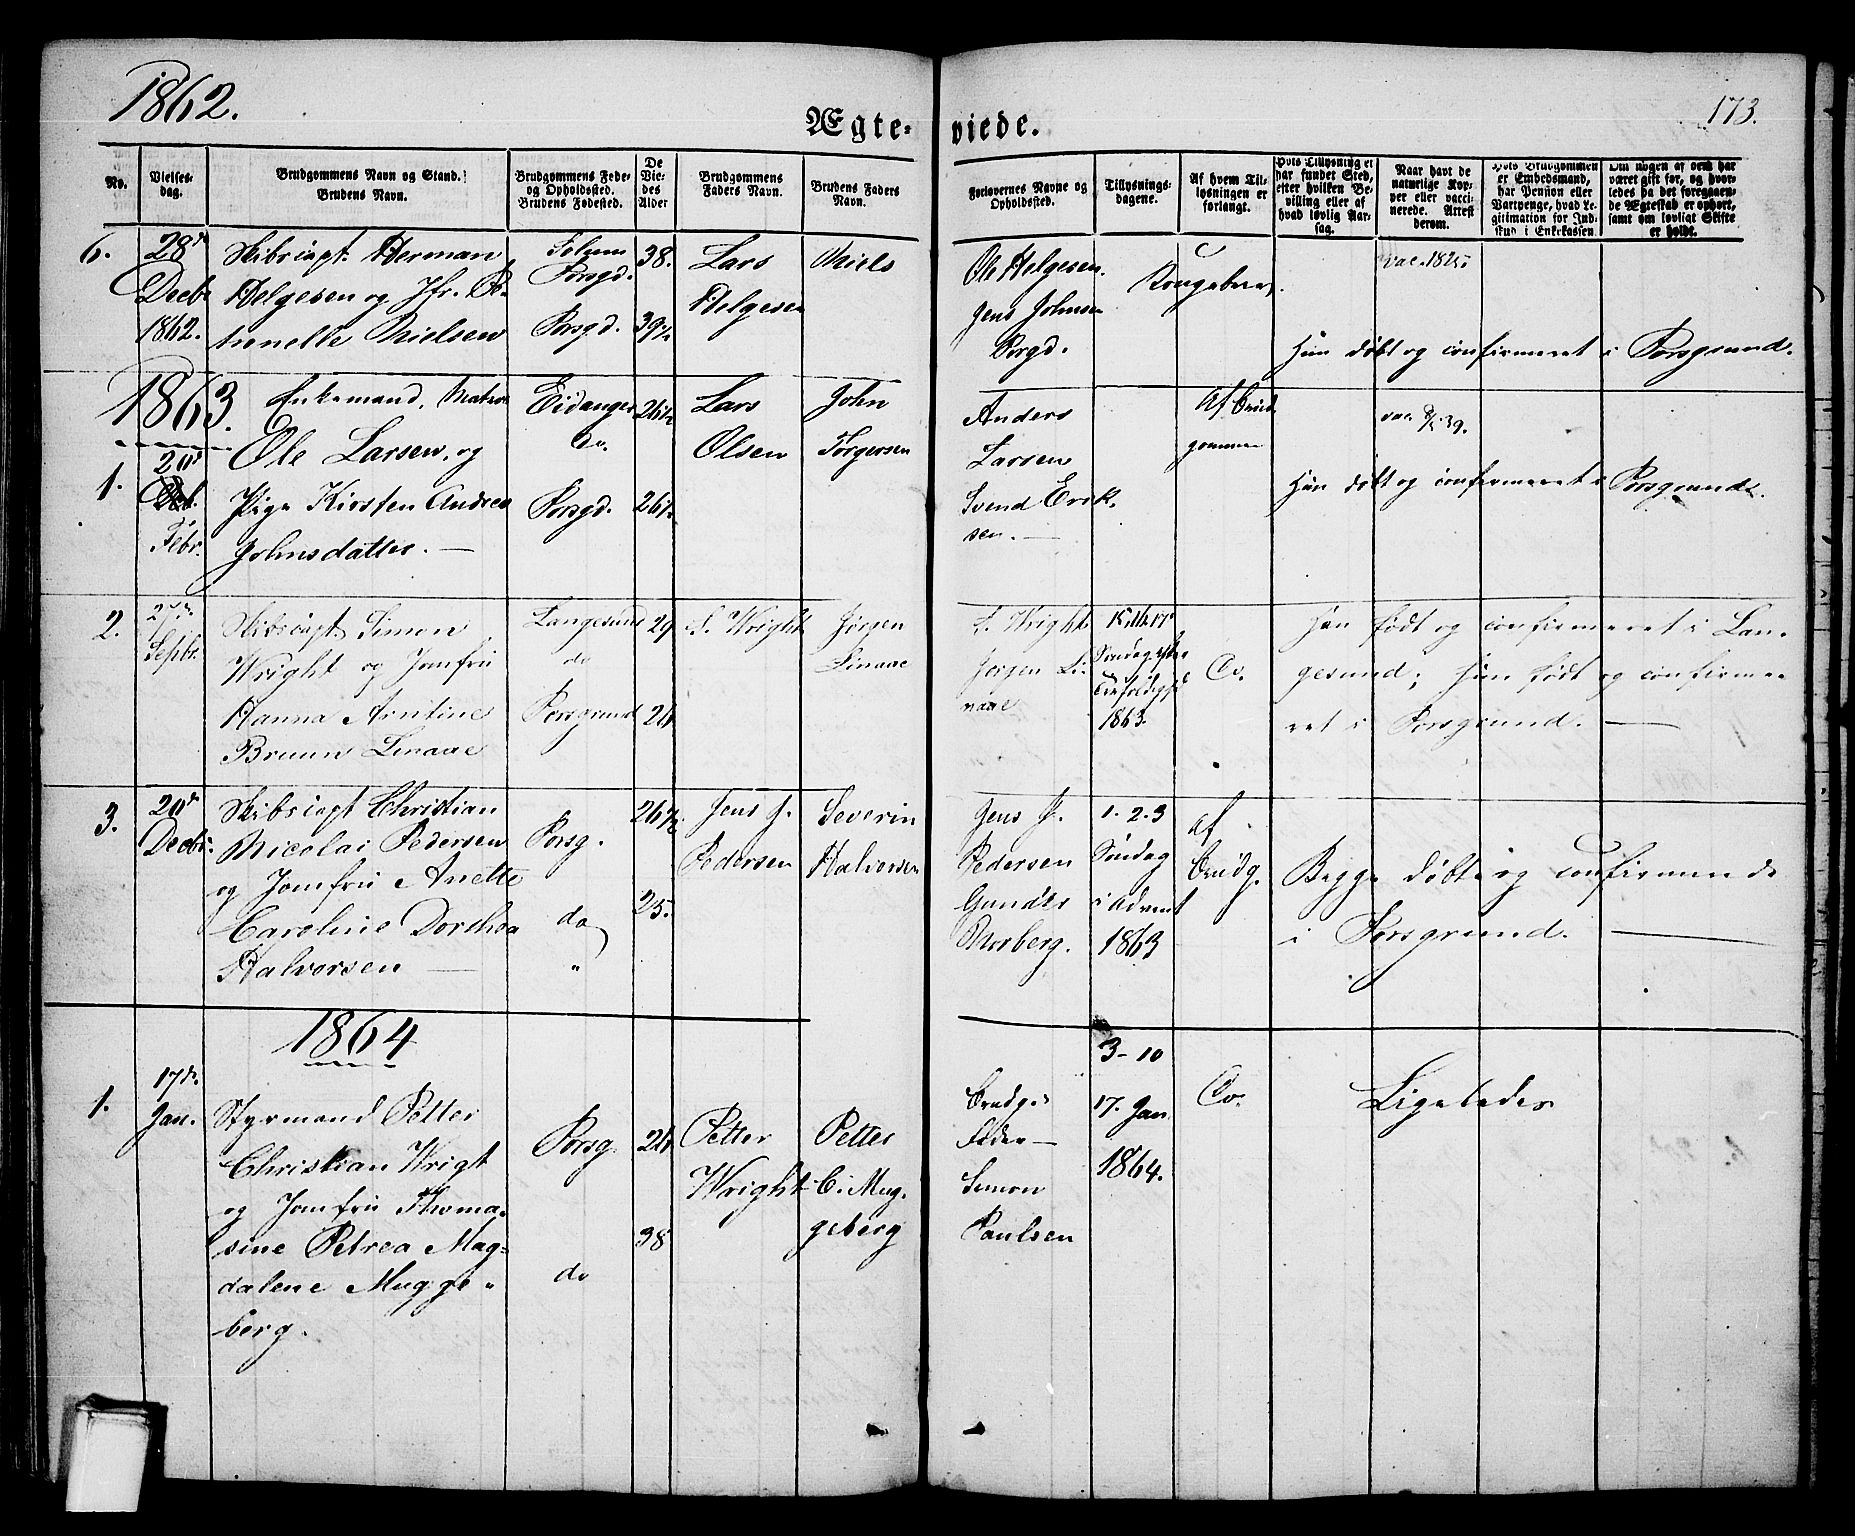 1862.
173.
Ægte- viede.
No.
Vielses-
dag.
Brudgommens Navn og Stand.
Brudens Navn.
Brudgommens Føde-
og Opholdssted.
Brudens Fødested.
De
Vie-
des
Alder
Brudgommens
Faders Navn.
Brudens Faders
Navn.
Forlovernes Navne og
Opholdssted.
Tillysnings-
dagene.
Af hvem Til-
lysningen er
forlangt.
Hvis Tillysning ei
har fundet Sted,
efter hvilken Be-
villing eller af
hvad lovlig Aar-
sag.
Naar havt de
naturlige Kop-
per eller vacci-
nerede. Attest
derom.
Hvis Brudgommen
er Embedsmand,
har Pension eller
Vartpenge, hvad Le-
gitimation for Ind-
skud i Enkekassen.
Om nogen af dem har
været gift før, og hvor-
ledes da det foregaaen-
de Ægteskab er ophørt,
samt om lovligt Skifte
er holdt.
6.
28de
Decbr
1862.
Skibscapt. Herman
Helgesen og Jfr. Pe-
tronelle Nielsen
Solum
Porsgd.
Porsgd.
38.
39½
Lars
Helgesen
Niels
Ole Helgesen.
Jens Johnsen
Porsgd.
Kongebrev.
vac. 1825
Hun døbt og confirmeret i Porsgrund.
1863.
1.
20de
Febr.
Enkemand, Matros
Ole Larsen, og
Pige Kirsten Andrea
Johnsdatter. —
Eidanger
do.
Porsgd.
26½
26½
Lars
Olsen
John
Torgersen
Anders
Larsen
Svend Erik-
sen. —
Af Brud
gommen
vac. 39.
Hun døbt og confirmeret i Porsgrund.
2.
27de
Septbr.
Skibscapt. Simon
Wright og Jomfru
Hanna Arntine
Bruun Linaae
Langesund
do
Porsgrund
29
26
S. Wright
Jørgen
Linaae
S. Wright
Jørgen Li-
naae
15, 16, 17de
Søndag efter
Trefoldighd
1863.
Do.
Han født og confirmeret i Lan-
gesund; Hun født og confirme-
ret i Porsgrund. —
3.
20de
Decbr.
Skibscapt Christian
Nicolai Pedersen
og Jomfru Anette
Caroline Dorthea
Halvorsen —
Porsg.
do
"
26½
25.
Jens J.
Pedersen
Severin
Halvorsen
Jens J.
Pedersen
Gunder
Morberg.
1. 2. 3
Søndag
i Advent
1863
Af
Brudg.
Begge døbte og confirmerede
i Porsgrund. —
1864
1.
17de
Jan.
Styrmand Petter
Christian Wrigt
og Jomfru Thoma-
sine Petrea Mag-
dalene Mugge-
berg.
Porsg
do
26
38
Petter
Wright
Petter
C. Mug-
geberg
Brudgs
Fader —
Simon
Paulsen
3-10
17. Jan
1864.
Do.
Ligeledes